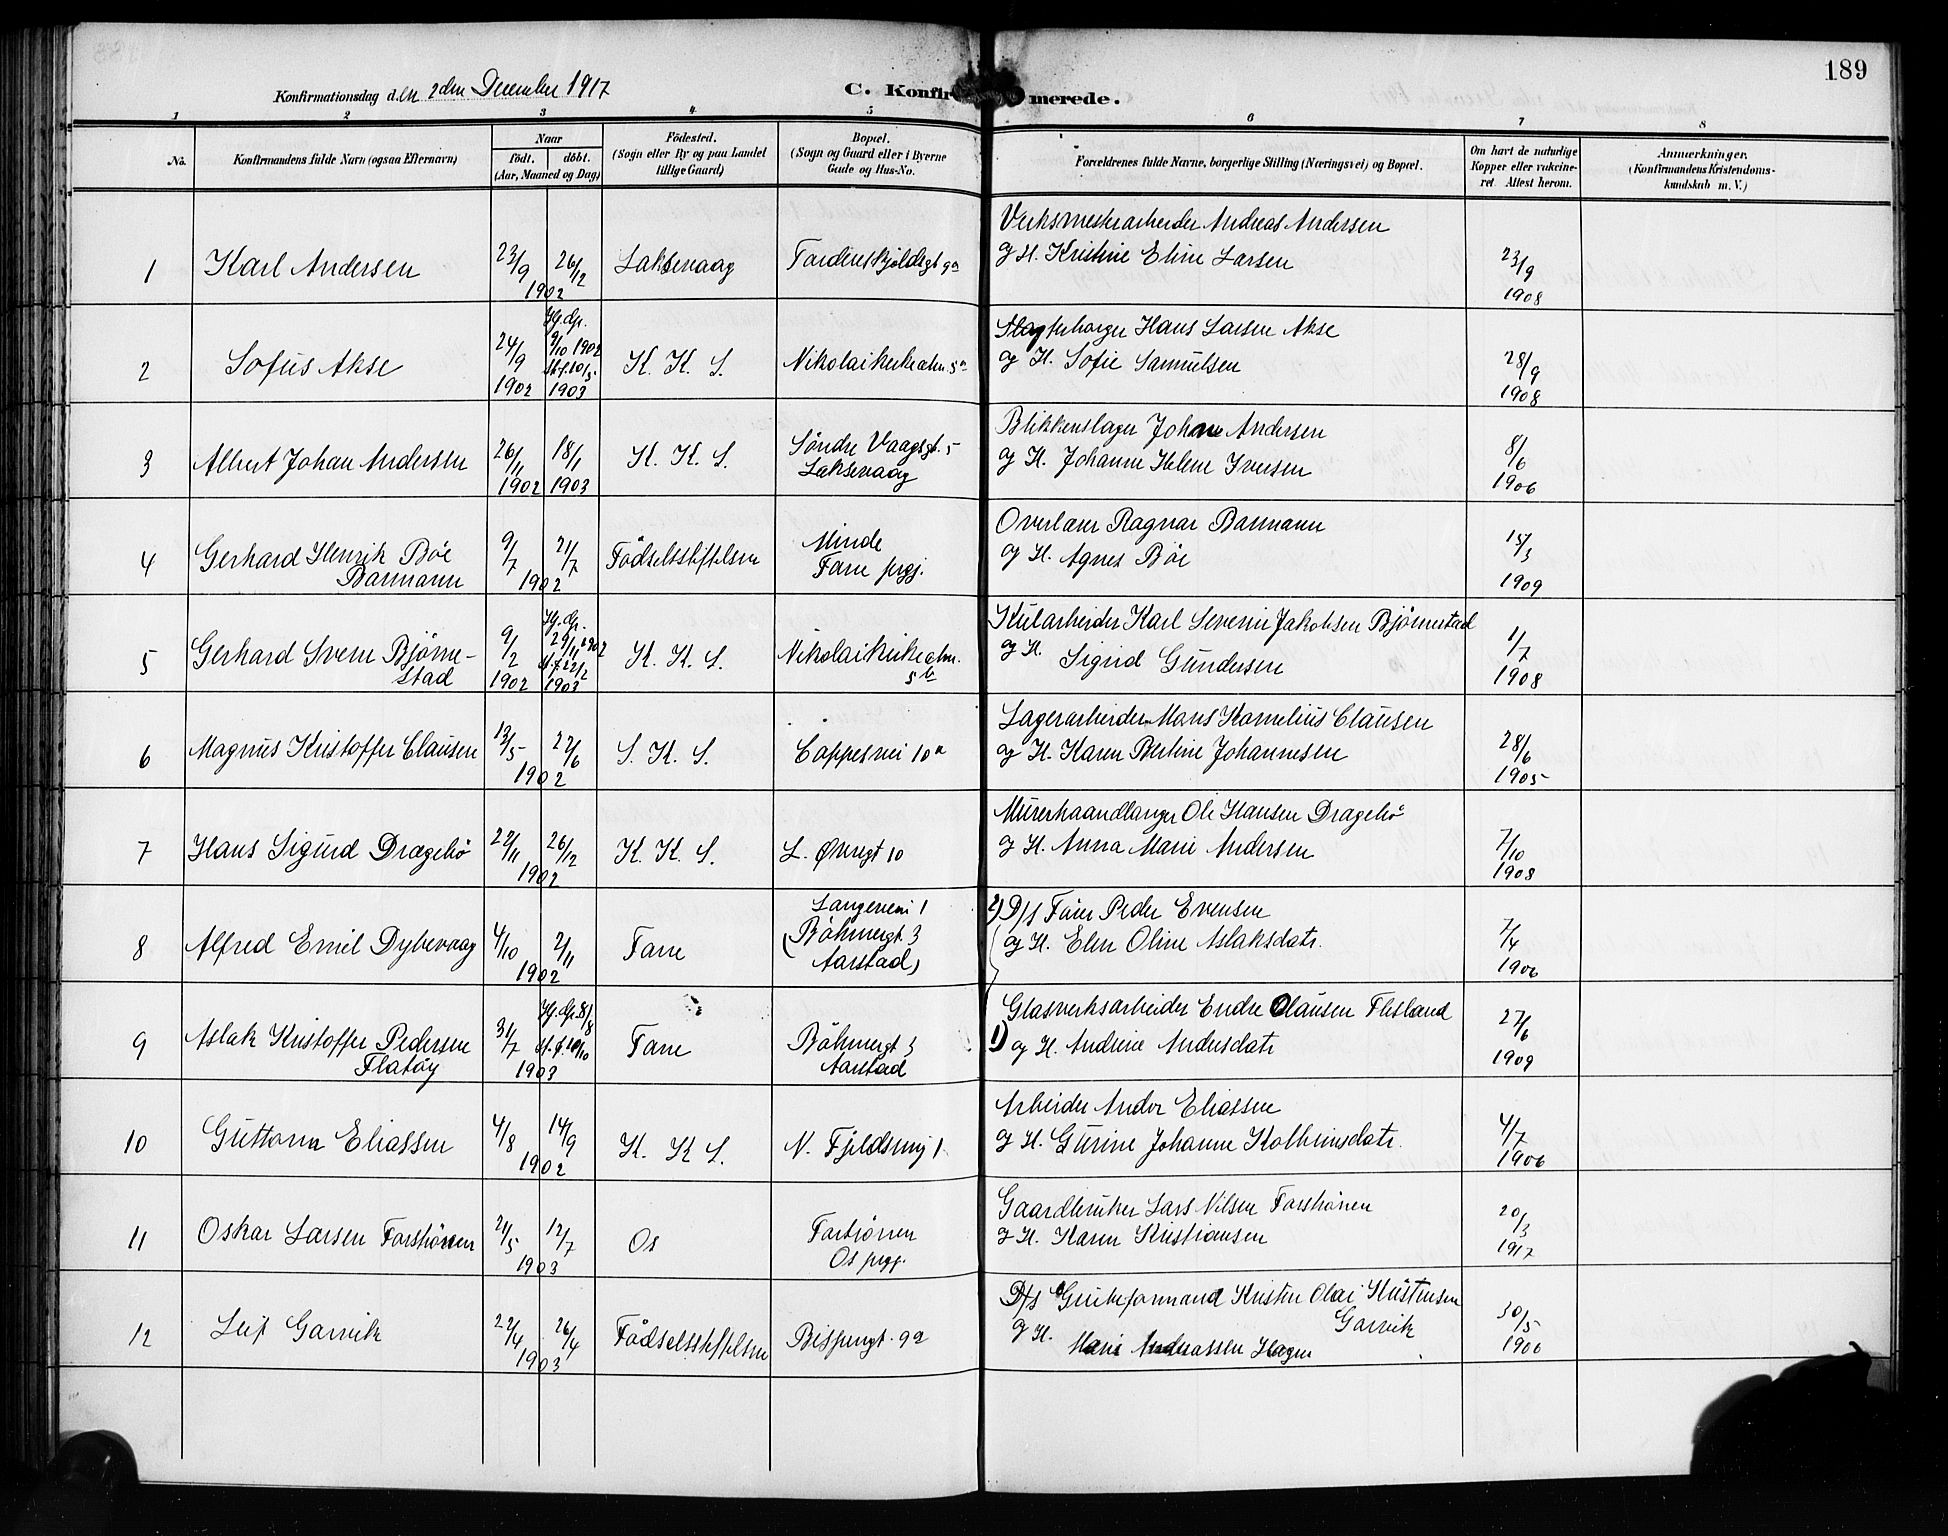 189
Konfirmationsdag den 2den December 1917
C. Konfirmerede.
1 2 3 4 5 6 7 8
No.
Konfirmandens fulde Navn (ogsaa Efternavn)
Naar
født. døbt.
(Aar, Maaned og Dag)
Födested.
(Sogn eller By og paa Landet
tillige Gaard)
Bopæl.
(Sogn og Gaard eller i Byerne
Gade og Hus-No.
Forældrenes fulde Navne, borgerlige Stilling (Næringsvei) og Bopæl.
Om havt de naturlige
Kopper eller vakcine-
ret. Attest herom.
Anmærkninger.
(Konfirmandens Kristendoms-
kundskab m. V.)
1 Karl Andersen 23/9 26/12 1902 Laksevaag Tordenskjoldsgt 9a
Verksmesterarbeider Andreas Andersen
og H. Kristine Eline Larsen
23/9 1908
2 Sofus Akse 24/9 1902 Hj. dp. 9/10 1902 St. f. 10/5 1903 K. K. S. Nikolaikirkealm. 5a
Hans Larsen Akse
og H. Sofie Samuelsen
28/9 1908
3 Albert Johan Andersen 26/11 1902 18/1 1903 K. K. S. Söndre Vaagsgt. 5
Laksevaag
Blikkenslager Johan Andersen
og H. Johanne Helene Iversen
8/6 1906
4 Gerhard Henrik Böe
Barmann
9/7 21/7 1902 Födselsstiftelsen Minde
Fane prgj.
Overlærer Ragnar Barmann
og H. Agnes Böe
15/3 1909
5 Gerhard Sverre Bjørne-
stad
9/2 1902 Hj. dp. 29/11 1902 St. f. 22/2 1903 K. K. S. Nikolaikirkealm.
5b
Kularbeider Karl Severin Jakobsen Bjørnestad
og H. Sigrid Gundersen
1/7 1908
6 Magnus Kristoffer Clausen 13/5 22/6 1902 S. K. S. Cappesvei 10a
Lagerarbeider Hans Kornelius Clausen
og H. Karen Bertine Johannesen
28/6 1905
7 Hans Sigurd Dragebö 22/11 26/12 1902 K. K. S. L. Øvregt 10
Murerhaandlanger Ole Hansen Dragebö
og H. Anna Marie Andersen
7/10 1908
8 Alfred Emil Dybevaag 4/10 2/11 1902 Fane Langeveni 1
(Böhmergt 3
Aarstad)
2) D/s Fører Peder Evensen
og H. Elen Oline Aslaksdatr.
7/4 1906
9 Aslak Kristoffer Pedersen
Flatöy
31/7 Hj. dp. 8/8 St. f. 10/10 1903 Fane Böhmergt 3
Aarstad
1) Glasverksarbeider Endre Olausen Flesland
og H. Andrine Andersdatr
27/6 1909
10 Guttorm Eliassen 4/8 14/9 1902 K. K. S. N. Fjeldsmug 1
Arbeider Andor Eliassen
og H. Gurine Johanne Kolbeinsdatr.
4/7 1906
11 Oskar Larsen Forströnen 21/5 12/7 1903 Os Forströnen
Os prgj.
Gaardbruker Lars Nilsen Forströnen
og H. Karen Kristiansen
20/3 1917
12 Leif Garvik 22/4 26/4 1903 Födselsstiftelsen Bispengt. 9a
D/s Grubeformand Kristen Olai Kristensen
Garvik
og H. Marie Andreassen Hagen
30/5 1906